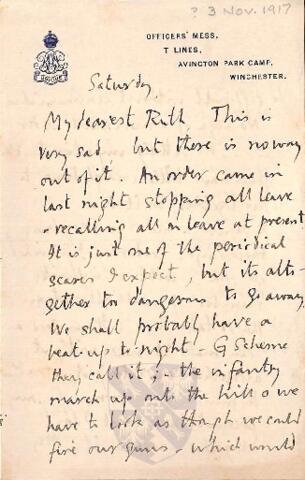 ? 3 Nov. 1917
OFFICERS' MESS,
T LINES,
AVINGTON PARK CAMP,
WINCHESTER.
Saturday
My dearest Ruth This is
very sad but there is no way
out of it. An order came in
last night stopping all leave
& recalling all on leave at present
It is just one of the periodical
scares I expect, but its alto-
gether too dangerous to go away.
We shall probably have a
beat-up to night - G Scheme
they call it; the infantry
march up onto the hill & we
have to look as though we could
fire our guns - which would